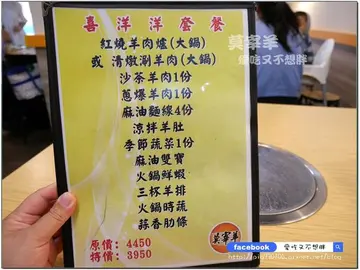 喜洋洋套餐
紅燒羊肉爐(大鍋)
或 清燉涮羊肉(大鍋)
沙茶羊肉1份
蔥爆羊肉1份
麻油麵線4份
涼拌羊肚
季節蔬菜1份
麻油雙寶
火鍋鮮蝦
三杯羊排
火鍋時蔬
蒜香肋條
原價: 4450
特價: 3950
莫宰羊
莫宰羊
愛吃又不想胖
facebook
愛吃又不想胖